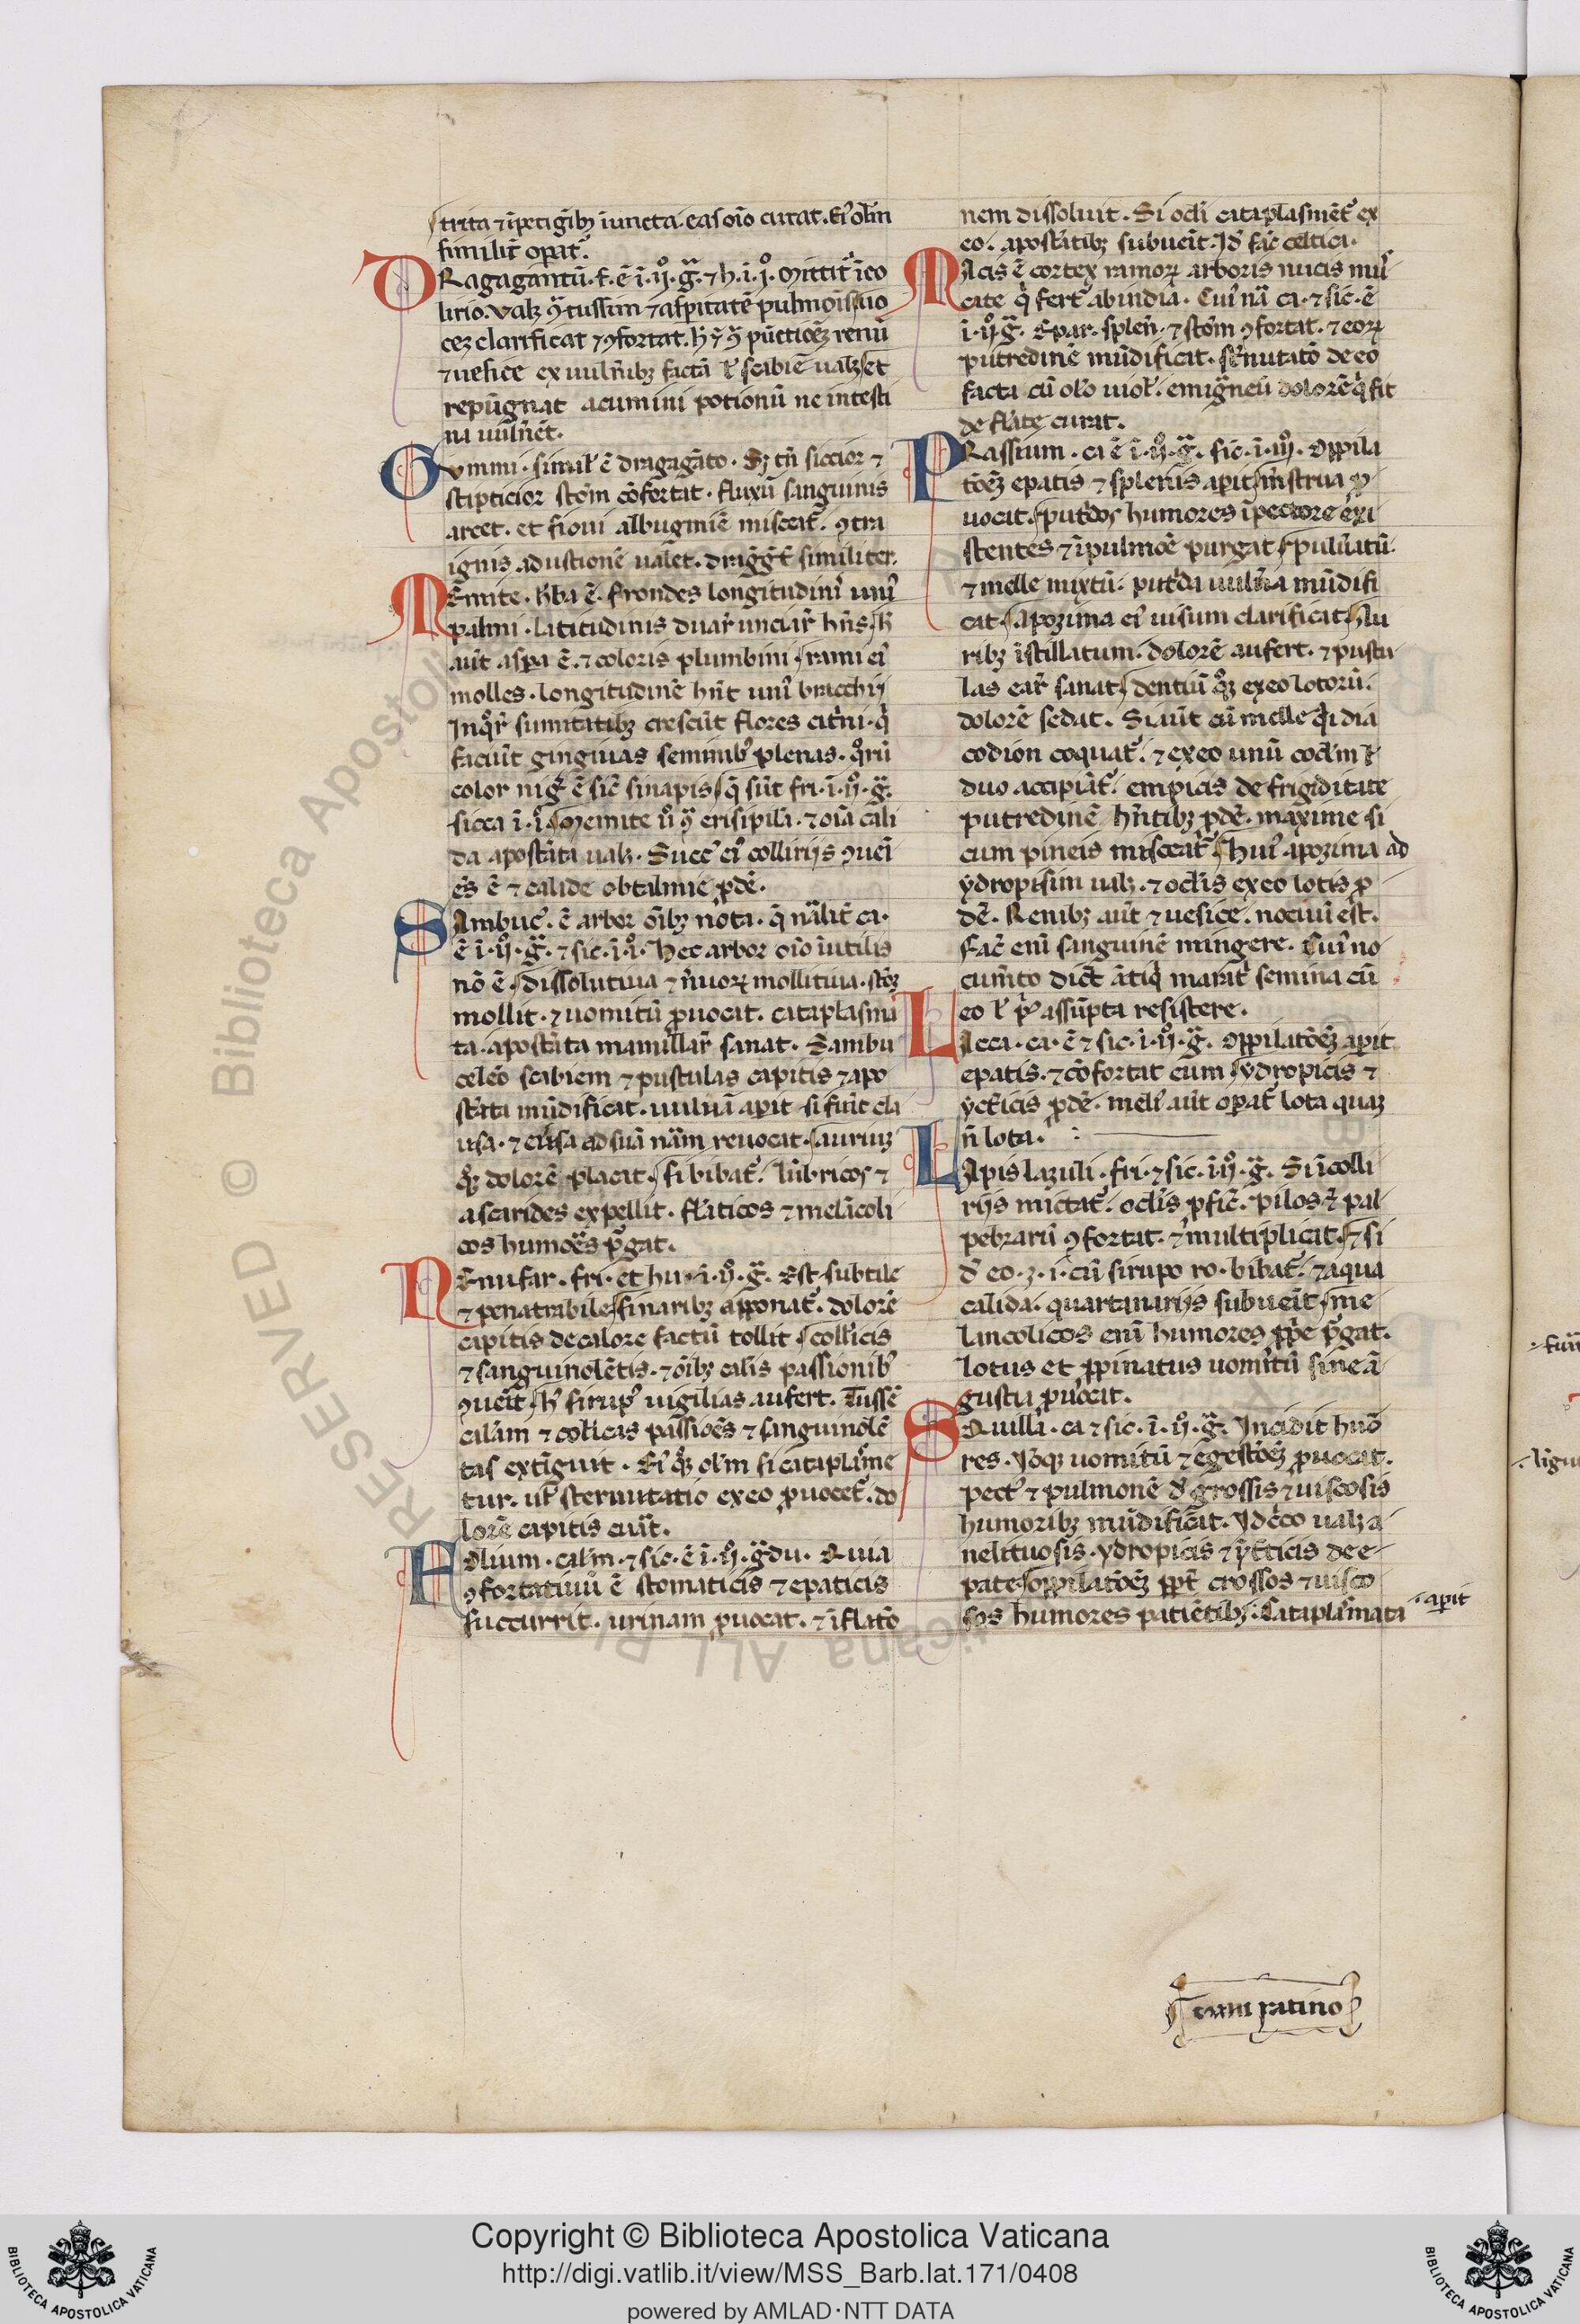 trita ⁊ ĩpetigĩbꝫ ĩuncta. eas oĩo curat. Eiꝰ olm̃
similit᷑ op̃at᷑.
DRagagantũ. f. ẽ ĩ. ij.º g̃. ⁊ h. ĩ. i.º Mittit᷑ ĩ eo
lirio. Valꝫ ꝯ̃ tussim ⁊ aspitatẽ pulmoĩs uo
cez clarificat ⁊ ꝯfortat.
⁊ uesice ex uuln̾ibꝫ factã ł scabiẽ ualꝫ et
repũgnat acumini potionũ ne intesti
na uuln̾et.
GVmmi. simił ẽ dragagãto. Sꝫ tñ siccior ⁊
stipticior stom̃ cõfortat. fluxũ sanguinis
arcet. et si oui albugĩnẽ misceat᷑. ꝯtra
ignis adustionẽ ualet. drãgg̃t similiter.
MEmite. h̾ba ẽ. frondes longitudinĩ unĩꝰ
palmi. latitudinis duar᷑ unciar᷑ hñs. h̾
aũt aspa ẽ. ⁊ coloris plumbini. rami eiꝰ
molles. longitudinẽ hñt uniꝰ bracchij
In qͦr᷑ sumitatibꝫ crescũt flores cit̾ni. q̾
faciũt gingiuas seminibꝰ plenas. qͦrũ
color nig̾ ẽ sic̃ sinapis q̃ sũt fri. ĩ. ij.º g̃.
sicca ĩ. i.º Memite uº ꝯ̃ erisipilã. ⁊ oĩa cali
da apostãta ualꝫ. Succꝰ eiꝰ colliriis ꝯuẽi
ẽs ẽ ⁊ calide obtalmie ꝓdẽ.
SAmbucꝰ. ẽ arbor oĩbꝫ nota. q̃ nãlit᷑ ca.
ẽ ĩ. ij.º g̃. ⁊ sic. ĩ. i.º Hec arbor oĩo ĩutilis
nõ ẽ. dissolutiua ⁊ ñuoꝝ mollitiua. stõꝫ
mollit. ⁊ uomitũ ꝓuocat. cataplasma
ta. apostãta mamillar᷑ sanat. Sambu
celeõ scabiem ⁊ pustulas capitis ⁊ apo
stãta mũdificat. uuluã apit si fũit cla
usa. ⁊ eũsa ad suã nãm reuocat. auriuꝫ
q̾ꝫ dolorẽ placat. si bibat᷑. lũbricos ⁊
ascarides expellit. flãticos ⁊ melãcoli
cos humoẽs p̾gat.
NEnufar. fri. et hu. ĩ. ij.º g̃. Est subtile
⁊ penatrabile. si naribꝫ apponat᷑. dolorẽ
capitis de calore factũ tollit. coll̾icis
⁊ sanguinolẽtis. ⁊ oĩbꝫ calis passionibꝰ
ꝯueĩt. hꝰ sirupꝰ uigilias aufert. Tussẽ
calãm ⁊ colicas passioẽs ⁊ sanguinolẽ
tas extĩguit. Eiꝰ q̾ꝫ olm̃ si cataplãme
tur. ut᷑ sternutatio ex eo ꝓuocet᷑. do
lorẽ capitis curat.
FOlium. calm̃. ⁊ sic. ẽ ĩ. ij.º g̃du. Quia
ꝯfortatiuũ ẽ stomaticis ⁊ epaticis
succurrit. urinam ꝓuocat. ⁊ ĩflatõ
nem dissoluit. Si ocli cataplasmẽt᷑ ex
eo. apostãtibꝫ subueĩt. Id̾ fac̃ celtica.
MAcis ẽ cortex ramoꝝ arboris nucis mus
cate q̃ fert᷑ ab india. Cuiꝰ nã ca. ⁊ sic. ẽ
ĩ. ij.º g̃. Epar. splen̾. ⁊ stom̃ ꝯfortat. ⁊ eoꝝ
putredinẽ mũdificat. st̾nutatõ de eo
facta cũ olõ uioł. emigñeũ dolorẽ q̾ fit
de flãte curat.
PRassium. ca ẽ ĩ. ij.º g̃. sic. ĩ. iij.º Oppila
tõeꝫ epatis ⁊ splenis apit. m̃strua ꝓ
uocat. put̾dos humores ĩ pectore exi
stentes ⁊ ĩ pulmõe purgat. puluatũ.
⁊ melle mixtũ. put̾da uuln̾a mũdifi
cat. Apozima eiꝰ uisum clarificat. Au
ribꝫ ĩstillatum. dolorẽ aufert. ⁊ pustu
las ear᷑ sanat. dentiũ q̾ꝫ ex eo lotorũ.
dolorẽ sedat. Si uũt cũ melle q̾ dia
codion coquat᷑. ⁊ ex eo unũ coclm̃ ł
duo accipiãt᷑. empicis de frigiditate
putredinẽ hñtibꝫ ꝓdẽ. maxime si
cum pineis misceat᷑. huiꝰ apozima ad
ydropisim ualꝫ. ⁊ oclis ex eo lotis ꝓ
dẽ. Renibꝫ aũt ⁊ uesice. nociuũ est.
fac̃ enĩ sanguinẽ mingere. Cuiꝰ no
cumto dic̃t ãtiq̃ marãt᷑ semina cũ
eo ł pꝰ assũpta resistere.
LAcca. ca. ẽ ⁊ sic. ĩ. ij.º g̃. Oppilatõeꝫ apit
epatis. ⁊ cõfortat eum ydropicis ⁊
yctẽicis ꝓdẽ. meliꝰ aũt op̃at᷑ lota quaꝫ
ñ lota.
LApis lazuli. fri. ⁊ sic. ĩ ij.º g̃. Si ĩ colli
riis mictat᷑. oclis ꝓfic̃. pilos q̾ pal
pebrarũ ꝯfortat. ⁊ multiplicat. ⁊ si
d̾ eo. ʒ. i. cũ sirupo ro. bibat᷑. ⁊ aqua
calida. quartanariis subueĩt. me
lancolicos enĩ humores ꝓpe p̾gat.
lotus et ꝓpinatus uomitũ sine ã
gustia ꝓuocat.
SQuilla. ca ⁊ sic. ĩ. ij.º g̃. Incidit huõ
res. Idq̾ꝫ uomitũ ⁊ egestõeꝫ ꝓuocat.
pectꝰ ⁊ pulmonẽ d̾ grossis ⁊ uiscosis
humoribꝫ mũdificat. Idc̾co ualꝫ a
nelituosis. ydropicis ⁊ yctẽicis de e
pate. oppilatõeꝫ ꝓpt᷑ crossos ⁊ uisco
sos humores patiẽtibꝫ. Cataplãmata
apit
cum patino
Copyright © Biblioteca Apostolica Vaticana
http://digi.vatlib.it/view/MSS_Barb.lat.171/0408
powered by AMLAD·NTT DATA
BIBLIOTECA APOSTOLICA VATICANA
BIBLIOTECA APOSTOLICA VATICANA